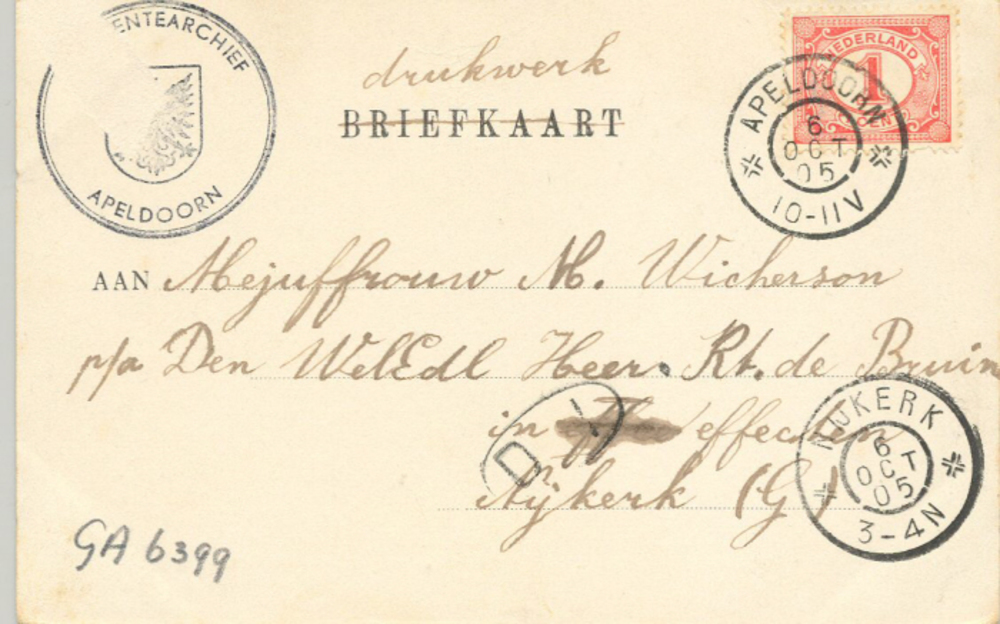 ENTEARCHIEF
APELDOORN
drukwerk
BRIEFKAART
NEDERLAND
1
APELDOORN
6
OCT
05
10-11V
AAN Mejuffrouw M. Wicherson
p/a Den WelEdl Heer. Rt. de Bruin
in effecten
Nijkerk (G)
D
NIJKERK
6
OCT
05
3-4N
GA 6399